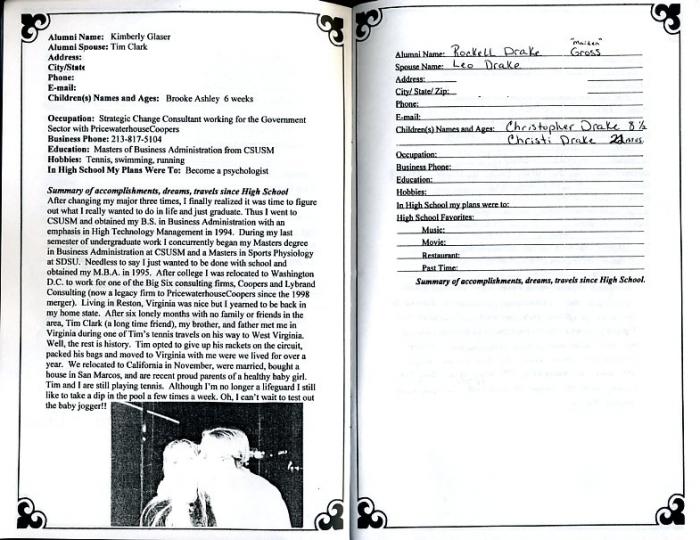 Alumni Name: Kimberly Glaser
Alumni Spouse: Tim Clark
Address:
City/State
Phone:
E-mail:
Children(s) Names and Ages: Brooke Ashley 6 weeks
Occupation: Strategic Change Consultant working for the Government
Sector with PricewaterhouseCoopers
Business Phone: 213-817-5104
Education: Masters of Business Administration from CSUSM
Hobbies: Tennis, swimming, running
In High School My Plans Were To: Become a psychologist
Summary of accomplishments, dreams, travels since High School
After changing my major three times, I finally realized it was time to figure
out what I really wanted to do in life and just graduate. Thus I went to
CSUSM and obtained my B.S. in Business Administration with an
emphasis in High Technology Management in 1994. During my last
semester of undergraduate work I concurrently began my Masters degree
in Business Administration at CSUSM and a Masters in Sports Physiology
at SDSU. Needless to say I just wanted to be done with school and
obtained my M.B.A. in 1995. After college I was relocated to Washington
D.C. to work for one of the Big Six consulting firms, Coopers and Lybrand
Consulting (now a legacy firm to PricewaterhouseCoopers since the 1998
merger). Living in Reston, Virginia was nice but I yearned to be back in
my home state. After six lonely months with no family or friends in the
area, Tim Clark (a long time friend), my brother, and father met me in
Virginia during one of Tim's tennis travels on his way to West Virginia.
Well, the rest is history. Tim opted to give up his rackets on the circuit,
packed his bags and moved to Virginia with me were we lived for over a
year. We relocated to California in November, were married, bought a
house in San Marcos, and are recent proud parents of a healthy baby girl.
Tim and I are still playing tennis. Although I'm no longer a lifeguard I still
like to take a dip in the pool a few times a week. Oh, I can't wait to test out
the baby jogger!!
"maiden"
Alumni Name: Rockell Drake Gross
Spouse Name: Leo Drake
Address:
City/ State/ Zip:
Phone:
E-mail:
Children(s) Names and Ages: Christopher Drake 8 ½
Christi Drake
Occupation:
Business Phone:
Education:
Hobbies:
In High School my plans were to:
High School Favorites:
Music:
Movie:
Restaurant:
Past Time:
Summary of accomplishments, dreams, travels since High School.